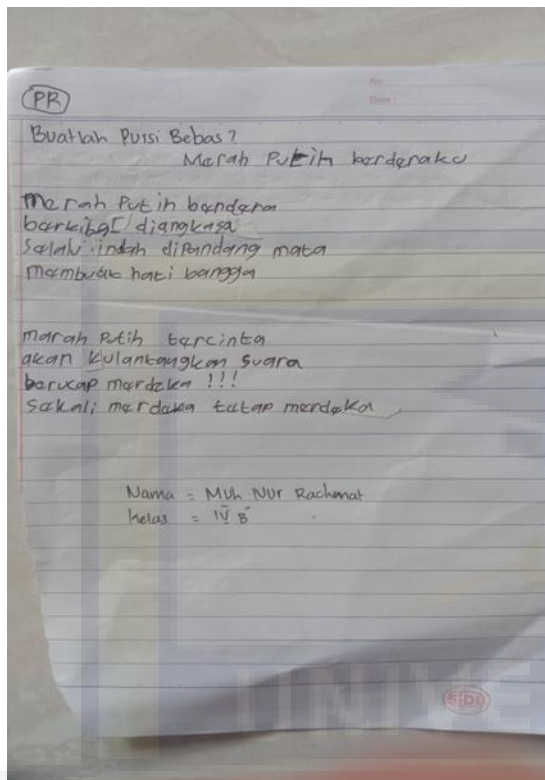 No.
Date :
PR
Buatlah Puisi Bebas?
Merah Putih benderaku
Merah Putih bendera
berkibar diangkasa
Selalu indah dipandang mata
Membuat hati bangga
merah Putih tercinta
akan kulantangkan suara
berucap merdeka !!!
Sekali merdeka tetap merdeka
Nama = Muh Nur Rachmat
Kelas = IV B
UNIVE
SIDU